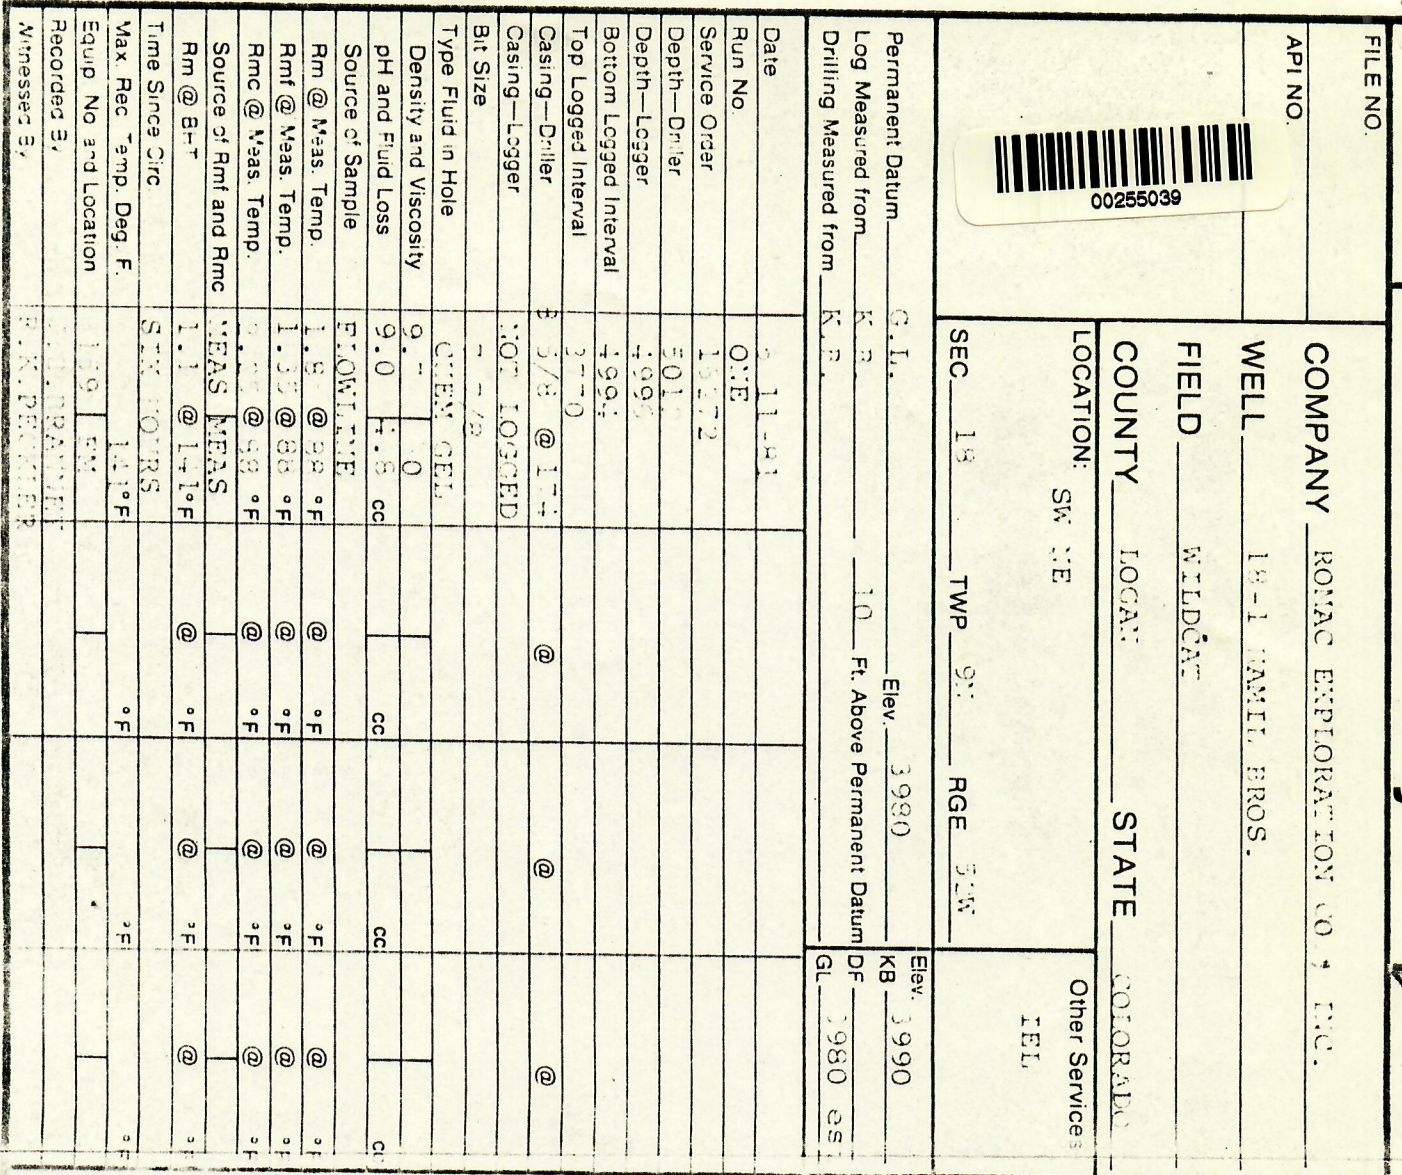 FILE NO.
API NO.
00255039
COMPANY ROMAC EXPLORATION CO., INC.
WELL 18-1 HAMIL BROS.
FIELD WILDCAT
COUNTY LOGAN STATE COLORADO
LOCATION: SW NE
Other Services
IEL
SEC 18 TWP 9N RGE 52W
Permanent Datum G.L. Elev. 3980
Log Measured from K.B. 10 Ft. Above Permanent Datum
Drilling Measured from K.B.
Elev.
KB 3990
DF
GL 3980 es
Date 11-81
Run No. ONE
Service Order
Depth—Driller
Depth—Logger
Bottom Logged Interval
Top Logged Interval
Casing—Driller 8 5/8 @ @ @ @
Casing—Logger NOT LOGGED
Bit Size
Type Fluid in Hole CHEM GEL
Density and Viscosity
pH and Fluid Loss 9.0 cc cc cc
Source of Sample FLOWLINE
Rm @ Meas. Temp. 1.8 @ 88 °F @ °F @ °F @ °F
Rmf @ Meas. Temp. @ 88 °F @ °F @ °F @ °F
Rmc @ Meas. Temp. @ 88 °F @ °F @ °F @ °F
Source of Rmf and Rmc MEAS MEAS
Rm @ BHT 1.1 @ 141 °F @ °F @ °F @ °F
Time Since Circ. SIX HOURS
Max. Rec. Temp. Deg. F. 141 °F °F °F °F
Equip. No. and Location
Recorded By
Witnessed By